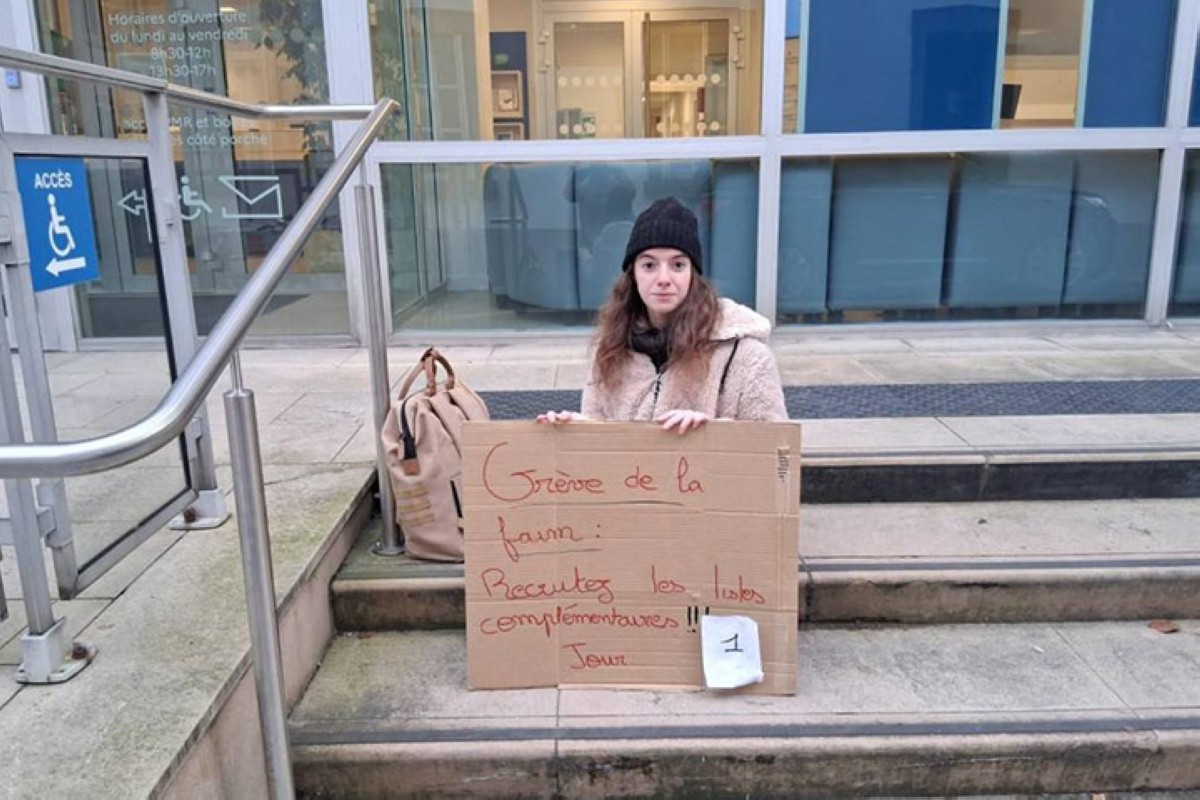 Horaires d'ouverture
du lundi au vendredi
8h30-12h
13h30-17h
PMR et
côté porche
ACCÈS
Grève de la
faim :
Recrutez les listes
complémentaires !!!
Jour 1